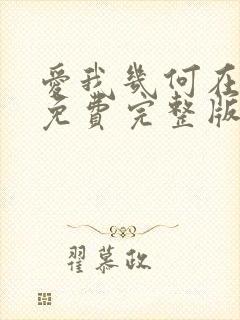 愛我幾何在
免費完整版
翟慕政